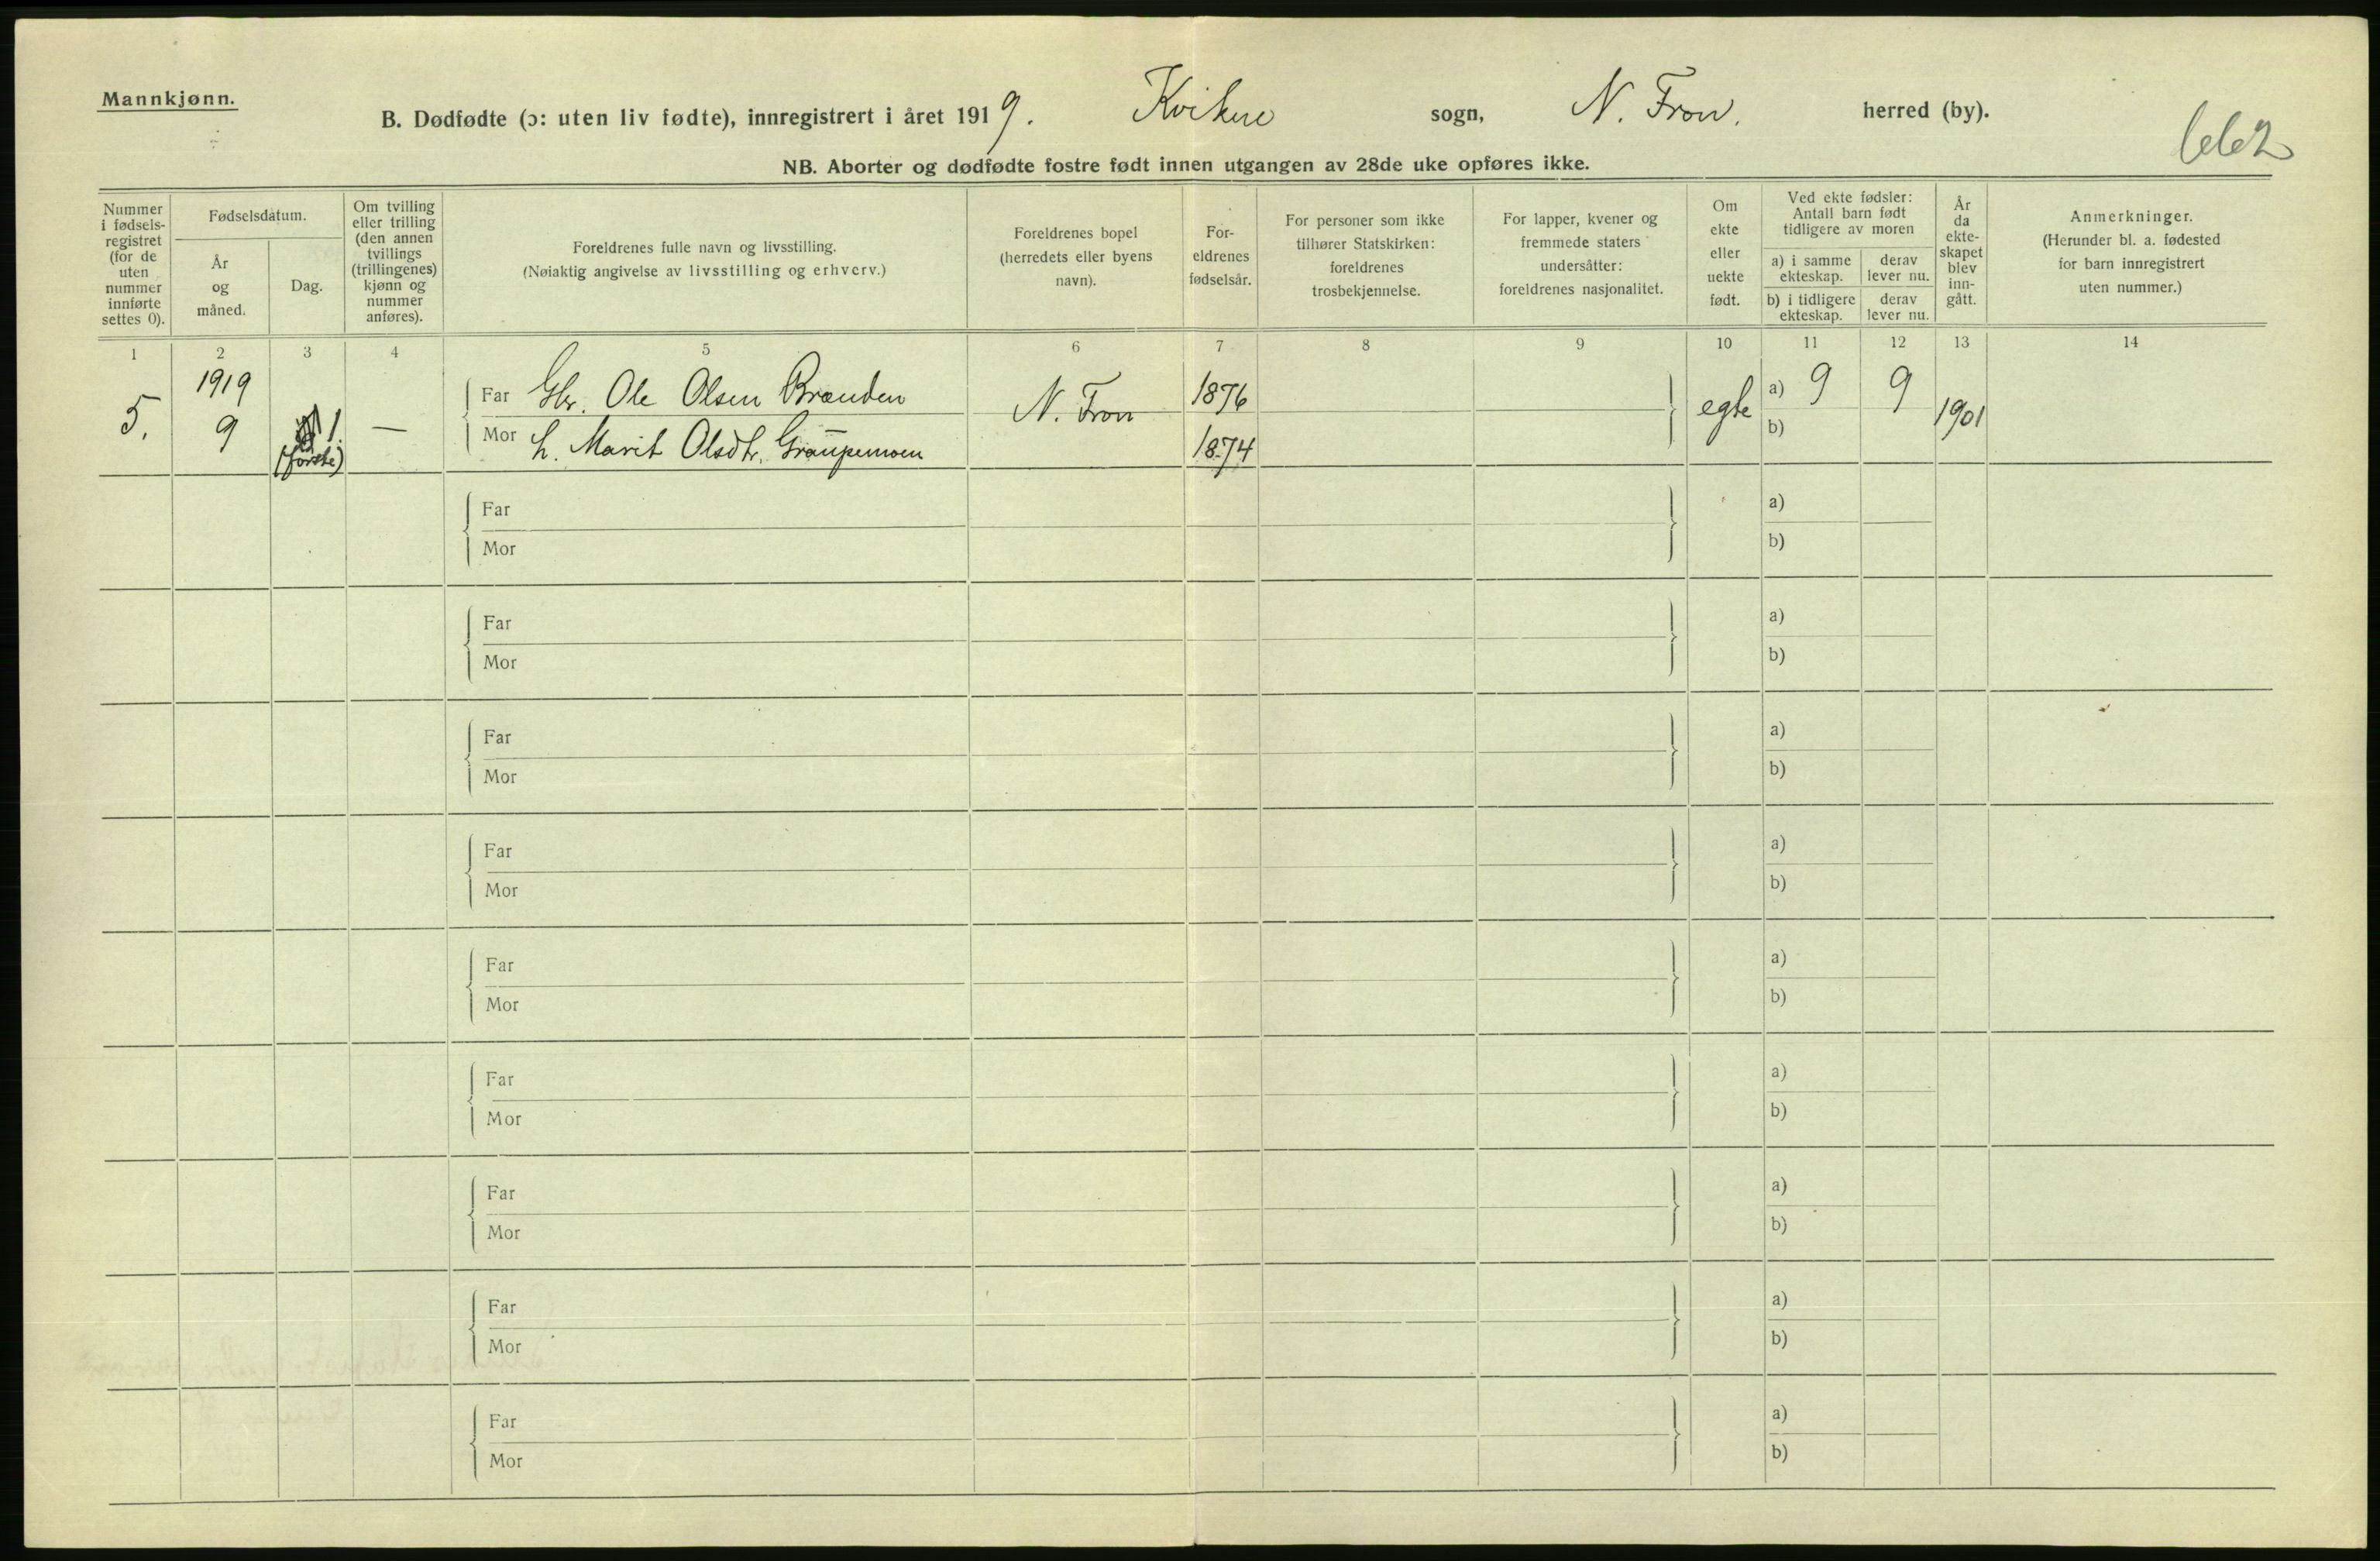 Mannkjønn.
B. Dødfødte (ɔ: uten liv fødte), innregistrert i året 1919. Kvikne sogn, N. Fron. herred (by).
662
NB. Aborter og dødfødte fostre født innen utgangen av 28de uke opføres ikke.
Nummer
i fødsels-
registret
(for de
uten
nummer
innførte
settes 0).
Fødselsdatum.
År
og
måned.
Dag.
Om tvilling
eller trilling
(den annen
tvillings
(trillingenes)
kjønn og
nummer
anføres).
Foreldrenes fulle navn og livsstilling.
(Nøiaktig angivelse av livsstilling og erhverv.)
Foreldrenes bopel
(herredets eller byens
navn).
For-
eldrenes
fødselsår.
For personer som ikke
tilhører Statskirken:
foreldrenes
trosbekjennelse.
For lapper, kvener og
fremmede staters
undersåtter:
foreldrenes nasjonalitet.
Om
ekte
eller
uekte
født.
Ved ekte fødsler:
Antall barn født
tidligere av moren
a) i samme
ekteskap.
derav
lever nu.
b) i tidligere
ekteskap.
derav
lever nu.
År
da
ekte-
skapet
blev
inn-
gått.
Anmerkninger.
(Herunder bl. a. fødested
for barn innregistrert
uten nummer.)
1 2 3 4 5 6 7 8 9 10 11 12 13 14
5. 1919 9 1. (første) — Far Gbr. Ole Olsen Brænden N. Fron 1876 egte a) 9 9 1901
Mor h. Marit Olsdtr. Graupemoen 1874 b)
Far a)
Mor b)
Far a)
Mor b)
Far a)
Mor b)
Far a)
Mor b)
Far a)
Mor b)
Far a)
Mor b)
Far a)
Mor b)
Far a)
Mor b)
Far a)
Mor b)